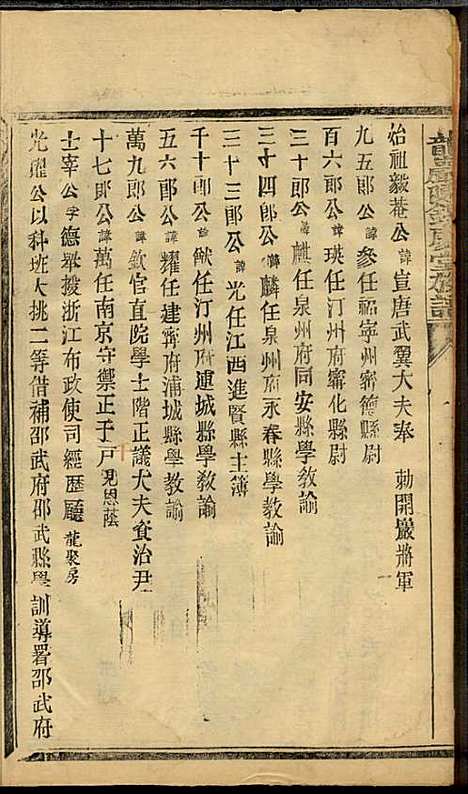 始祖毅菴公諱宣唐武翼大夫奉　勅開巖將軍
九五郎公諱參任福寧州寧德縣尉
百六郎公諱瑛任汀州府寧化縣尉
三十郎公諱麒任泉州府同安縣學教諭
三十四郎公諱麟任泉州府永春縣學教諭
三十三郎公諱光任江西進賢縣主簿
千十郎公諱猷任汀州府連城縣學教諭
五六郎公諱耀任建寧府浦城縣學教諭
萬九郎公諱欽官直院學士階正議大夫食治尹
十七郎公諱萬任南京守禦正千戶見恩蔭
士宰公字德舉授浙江布政使司經歷廳龍聚房
光曜公以科班大挑二等借補邵武府邵武縣學訓導署邵武府
堂族譜